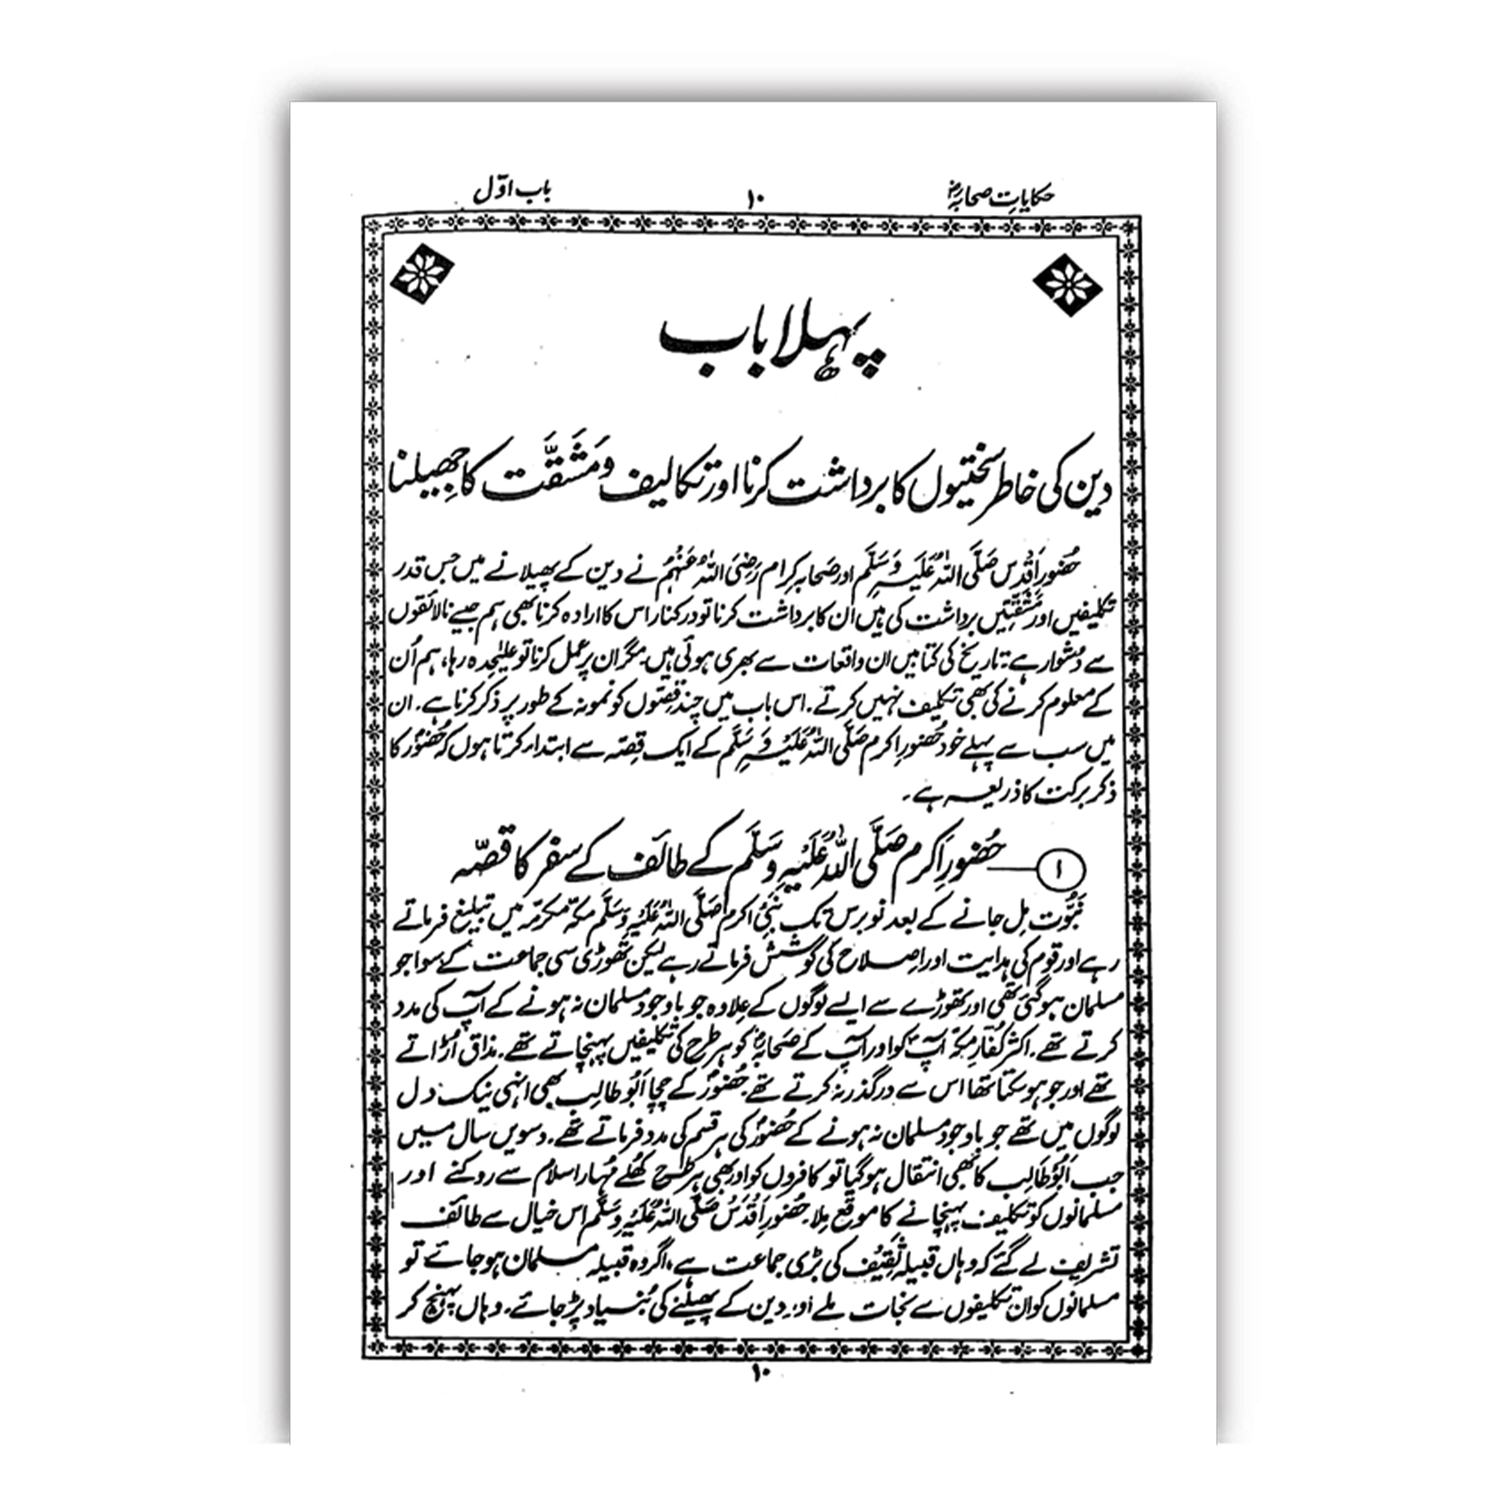 حکایاتِ صحابہؓ ۱۰ باب اوّل
پہلا باب
دین کی خاطر سختیوں کا برداشت کرنا اور تکالیف و مَشَقَّت کا جھیلنا
حُضورِ اَقْدس صَلَّی اللہُ عَلَیْہِ وَسَلَّم اور صحابہ کرام رَضِیَ اللہُ عَنْہُمْ نے دین کے پھیلانے میں جس قدر
تکلیفیں اور مَشَقَّتیں برداشت کی ہیں ان کا برداشت کرنا تو درکنار اس کا ارادہ کرنا بھی ہم جیسے نالائقوں
سے دُشوار ہے۔ تاریخ کی کتابیں ان واقعات سے بھری ہوئی ہیں۔ مگر ان پر عمل کرنا تو علیٰحدہ رہا، ہم اُن
کے معلوم کرنے کی بھی تکلیف نہیں کرتے۔ اس باب میں چند قِصّوں کو نمونہ کے طور پر ذکر کرنا ہے۔ ان
میں سب سے پہلے خود حُضورِ اکرم صَلَّی اللہُ عَلَیْہِ وَسَلَّم کے ایک قِصّہ سے ابتداء کرتا ہوں کہ حُضورؐ کا
ذکر برکت کا ذریعہ ہے۔
۱ — حُضورِ اکرم صَلَّی اللہُ عَلَیْہِ وَسَلَّم کے طائف کے سفر کا قصّہ
نُبُوَّت مِل جانے کے بعد نو برس تک نبیِّ اکرم صَلَّی اللہُ عَلَیْہِ وَسَلَّم مکّہ مکرّمہ میں تبلیغ فرماتے
رہے اور قوم کی ہدایت اور اِصلاح کی کوشش فرماتے رہے لیکن تھوڑی سی جماعت کے سوا جو
مسلمان ہوگئی تھی اور تھوڑے سے ایسے لوگوں کے عِلاوہ جو باوجود مسلمان نہ ہونے کے آپؐ کی مدد
کرتے تھے۔ اکثر کُفّارِ مکّہ آپؐ کو اور آپؐ کے صَحابہؓ کو ہر طرح کی تکلیفیں پہنچاتے تھے۔ مذاق اُڑاتے
تھے اور جو ہوسکتا تھا اس سے درگذر نہ کرتے تھے۔ حُضورؐ کے چچا اَبُوطالِب بھی انہی نیک دل
لوگوں میں تھے جو باوجود مسلمان نہ ہونے کے حُضورؐ کی ہر قسم کی مدد فرماتے تھے۔ دسویں سال میں
جب اَبُوطَالِب کا بھی انتقال ہوگیا تو کافروں کو اور بھی ہر طرح کھُلے مُہار اسلام سے روکنے اور
مسلمانوں کو تکلیف پہنچانے کا موقع مِلا۔ حُضورِ اَقْدَسْ صَلَّی اللہُ عَلَیْہِ وَسَلَّم اس خیال سے طائف
تشریف لے گئے کہ وہاں قبیلہ ثَقِیْف کی بڑی جماعت ہے، اگر وہ قبیلہ مسلمان ہوجائے تو
مسلمانوں کو ان تکلیفوں سے نجات ملے اور دین کے پھیلنے کی بُنیاد پڑ جائے۔ وہاں پہنچ کر
۱۰